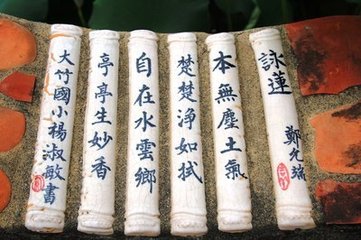 詠蓮
鄭允瑀
本無塵土氣
自在水雲鄉
楚楚淨如拭
亭亭生妙香
大竹國小楊淑敏書